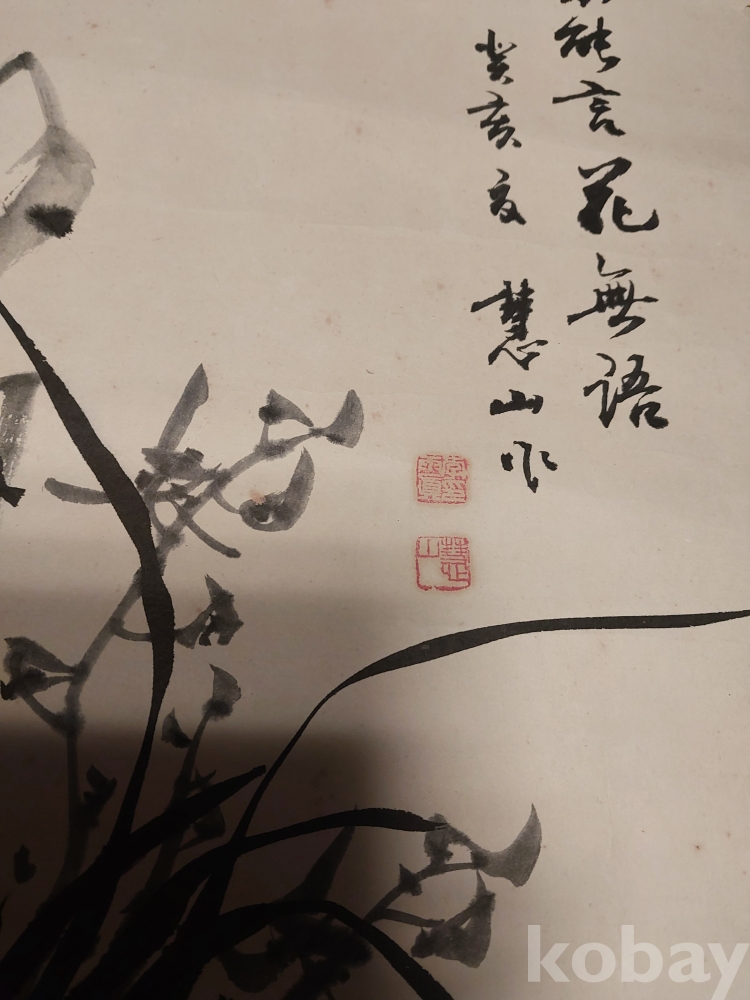 能言花無語
癸亥夏 慧山作
慧山
kobay